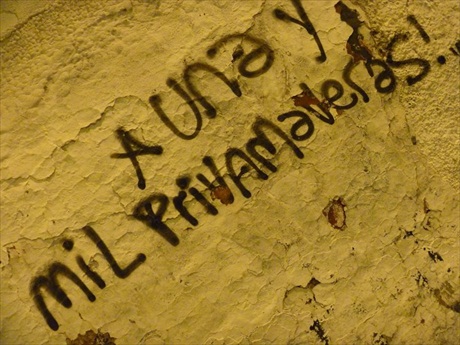 A una y
mil privAmaveras!..